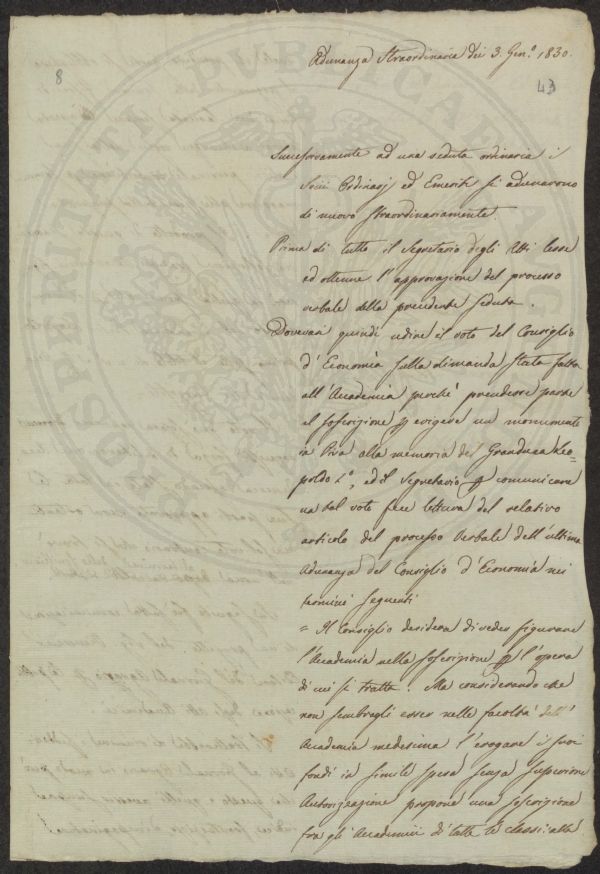 Adunanza Straordinaria dei 3. Gen.º 1830.
8
43
Successivamente ad una seduta ordinaria i
Socii Ordinarj ed Emeriti si adunarono
di nuovo straordinariamente.
Prima di tutto il Segretario degli Atti lesse
ed ottenne l'approvazione del processo
verbale della precedente seduta.
Dovevasi quindi udire il voto del Consiglio
d'Economia sulla dimanda stata fatta
all'Accademia perchè prendesse parte
al soscrizione p erigere un monumento
in Pisa alla memoria del Granduca Leo-
poldo Iº, ed il Segretario p comunicare
un tal voto fece lettura del relativo
articolo del processo Verbale dell'ultima
Adunanza del Consiglio d'Economia nei
termini seguenti
= Il Consiglio desidera di veder figurare
l'Accademia nella soscrizione p l'opera
di cui si tratta. Ma considerando che
non sembragli esser nelle facoltà dell'
Accademia medesima l'erogare i suoi
fondi in simile spesa senza superiore
Autorizzazione propone una soscrizione
fra gli Accademici di tutte le classi: alla